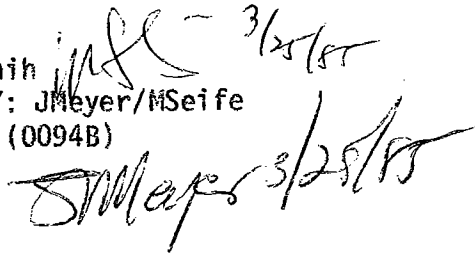 nih 3/25/85
: JMeyer/MSeife
(0094B)
JMMeyer 3/25/85